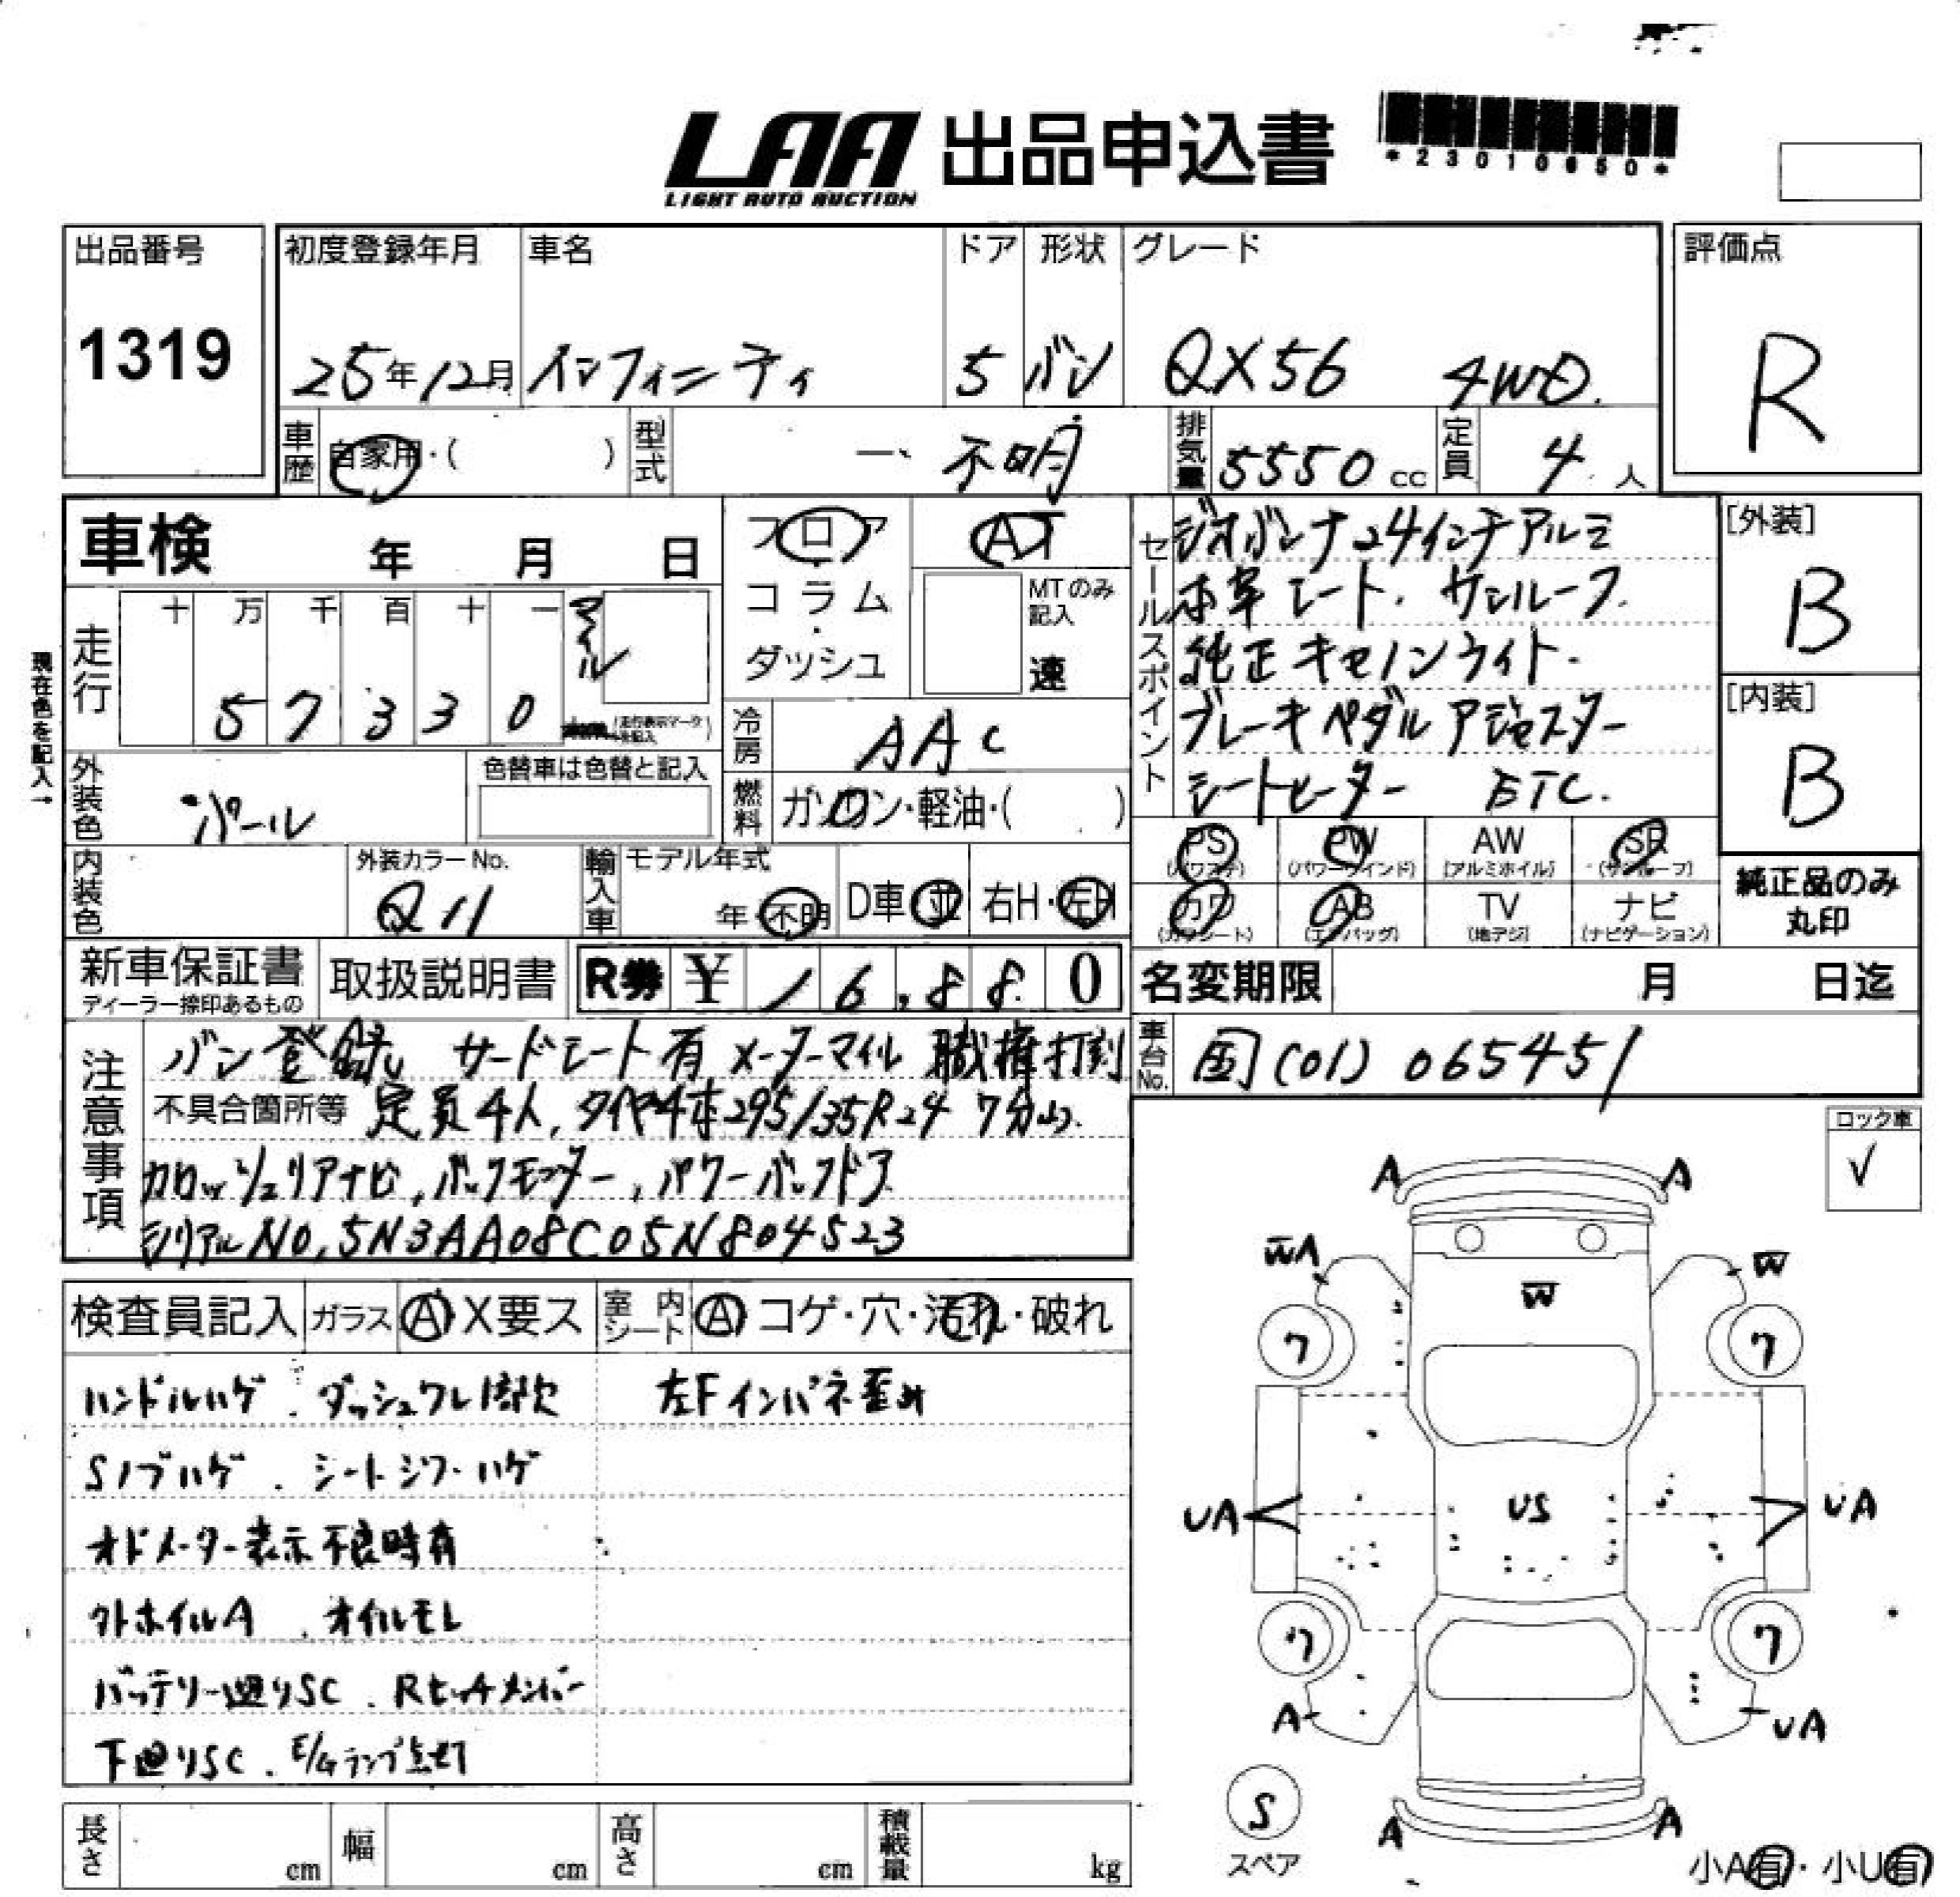 LAA 出品申込書
LIGHT AUTO AUCTION
*23010650*
出品番号
1319
初度登録年月
25年12月
車名
インフィニティ
ドア
5
形状
バン
グレード
QX56 4WD.
評価点
R
車歴
自家用・( )
型式
不明
排気量
5550 cc
定員
4 人
車検 年 月 日
フロア
コラム
・
ダッシュ
AT
MTのみ
記入
速
セールスポイント
ジオバンナ24インチアルミ
本革シート. サンルーフ.
純正キセノンライト.
ブレーキペダルアジャスター
シートヒーター ETC.
[外装]
B
[内装]
B
現在色を記入→
走行
十 万 千 百 十 一
5 7 3 3 0
マイル
(走行表示マークを記入)
冷房
AAC
燃料
ガソリン・軽油・( )
外装色
パール
色替車は色替と記入
内装色
外装カラーNo.
Q11
輸入車
モデル年式
年・不明
D車・並
右H・左H
PS
(パワステ)
PW
(パワーウインド)
AW
(アルミホイル)
SR
(サンルーフ)
カワ
(カワシート)
AB
(エアバッグ)
TV
(地デジ)
ナビ
(ナビゲーション)
純正品のみ
丸印
新車保証書
ディーラー捺印あるもの
取扱説明書
R券 ¥ 16,880
名変期限 月 日迄
車台No.
国(01)065451
注意事項
バン登録 サードシート有 メーターマイル 職権打刻
不具合箇所等 定員4人, タイヤ4本295/35R24 7分山.
カロッツェリアナビ, バックモニター, パワーバックドア
シリアルNO, 5N3AA08C05N804523
ロック車
✓
検査員記入
ガラス A X要ス
室内シート A コゲ・穴・汚れ・破れ
ハンドルハゲ. ダッシュワレ1部欠
左Fインパネ歪み
Sノブハゲ. シートシワ・ハゲ
オドメーター表示不良時有
外ホイルA. オイルモレ
バッテリー廻りSC. Rヒッチメンバー
下廻りSC. E/Gランプ点灯
A A
WA W
W
ワ ワ
UA US UA
ワ ワ
A UA
S
スペア
A A
小A有・小U有
長さ cm
幅 cm
高さ cm
積載量 kg